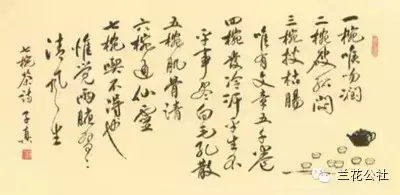 一椀喉吻潤
二椀破孤悶
三椀枝枯腸
唯有文章五千卷
四椀發冷汗平生不
平事盡向毛孔散
五椀肌骨清
六椀通仙靈
七椀喫不得也
惟覺兩腋習〻
清風生
七椀茶詩 子真
兰花公社